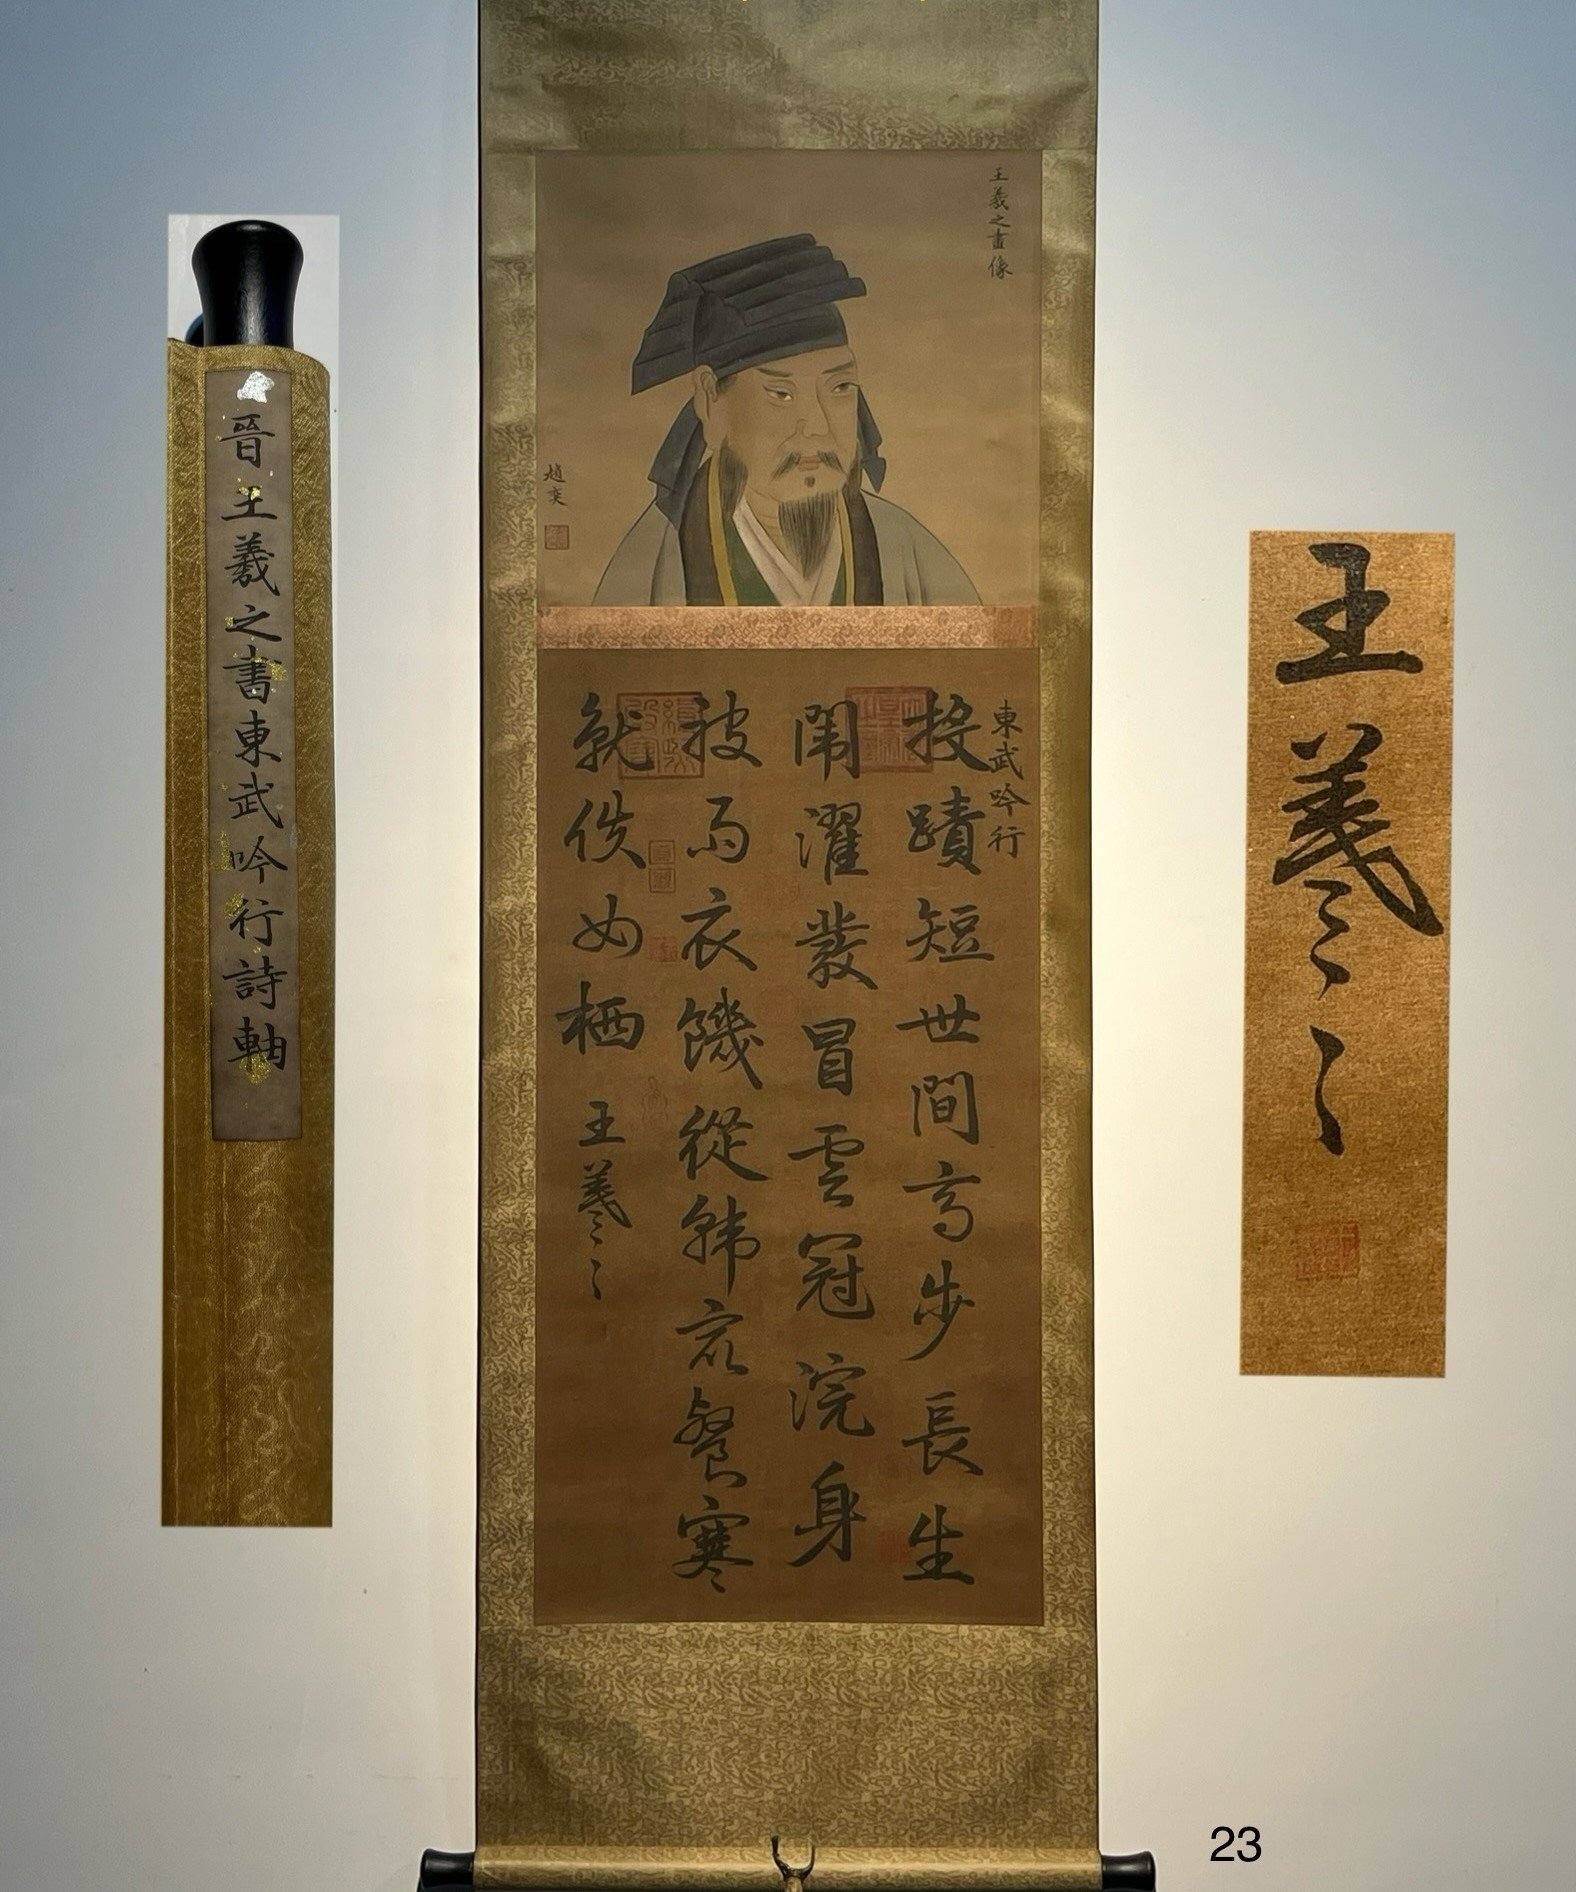 晉王羲之書東武吟行詩軸
王羲之畫像
趙奕
東武吟行
投蹟短世間高步長生
闈濯髮冒雲冠浣身
被羽衣饑從韓眾餐寒
就佚女栖
王羲之
王羲之
23